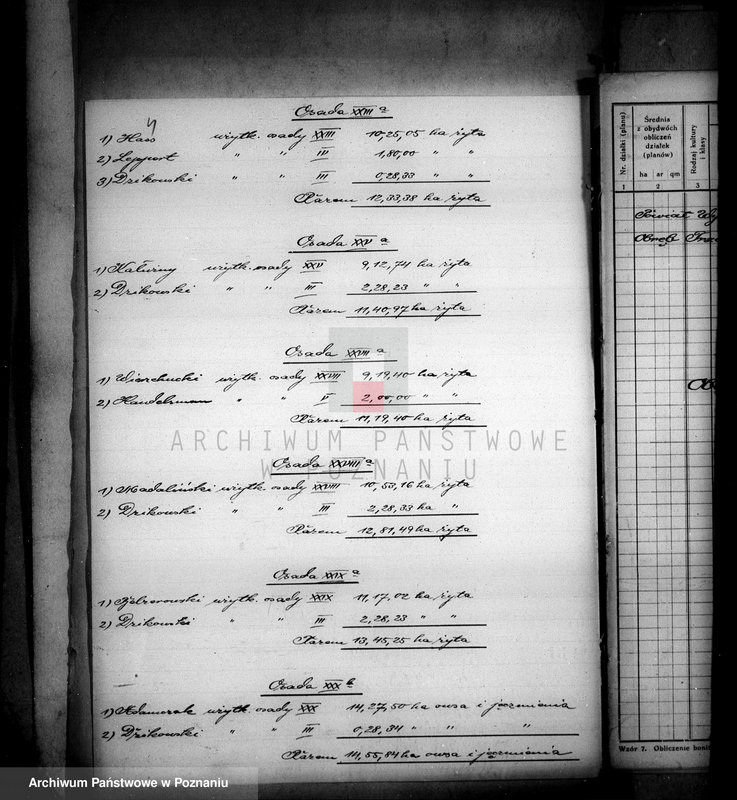 Osada XXIII a
1) Hass użytk. osady XXIII 10,25,05 ha żyta
2) Leppert " " III 1,80,00 " "
3) Dzikowski " " III 0,28,33 " "
Razem 12,33,38 ha żyta
Osada XXV a
1) Kałużny użytk. osady XXV 9,12,74 ha żyta
2) Dzikowski " " III 2,28,23 " "
Razem 11,40,97 ha żyta
Osada XXVII a
1) użytk. osady XXVII 9,19,40 ha żyta
2) Handelsman " " V 2,00,00 " "
Razem 11,19,40 ha żyta
Osada XXVIII a
1) Madaliński użytk. osady XXVIII 10,53,16 ha żyta
2) Dzikowski " " III 2,28,33 ha "
Razem 12,81,49 ha żyta
Osada XXIX a
1) użytk. osady XXIX 11,17,02 ha żyta
2) Dzikowski " " III 2,28,23 " "
Razem 13,45,25 ha żyta
Osada XXX b
1) Adamczak użytk. osady XXX 14,27,50 ha owsa i jęczmienia
2) Dzikowski " " III 0,28,34 " " "
Razem 14,55,84 ha owsa i jęczmienia
Nr. działki (planu)
Średnia
z obydwóch
obliczeń
działek
(planów)
ha ar qm
Rodzaj kultury
i klasy
1 2 3
Powiat
Obręb
Wzór 7. Obliczenie boni
ARCHIWUM PAŃSTWOWE
W POZNANIU
Archiwum Państwowe w Poznaniu